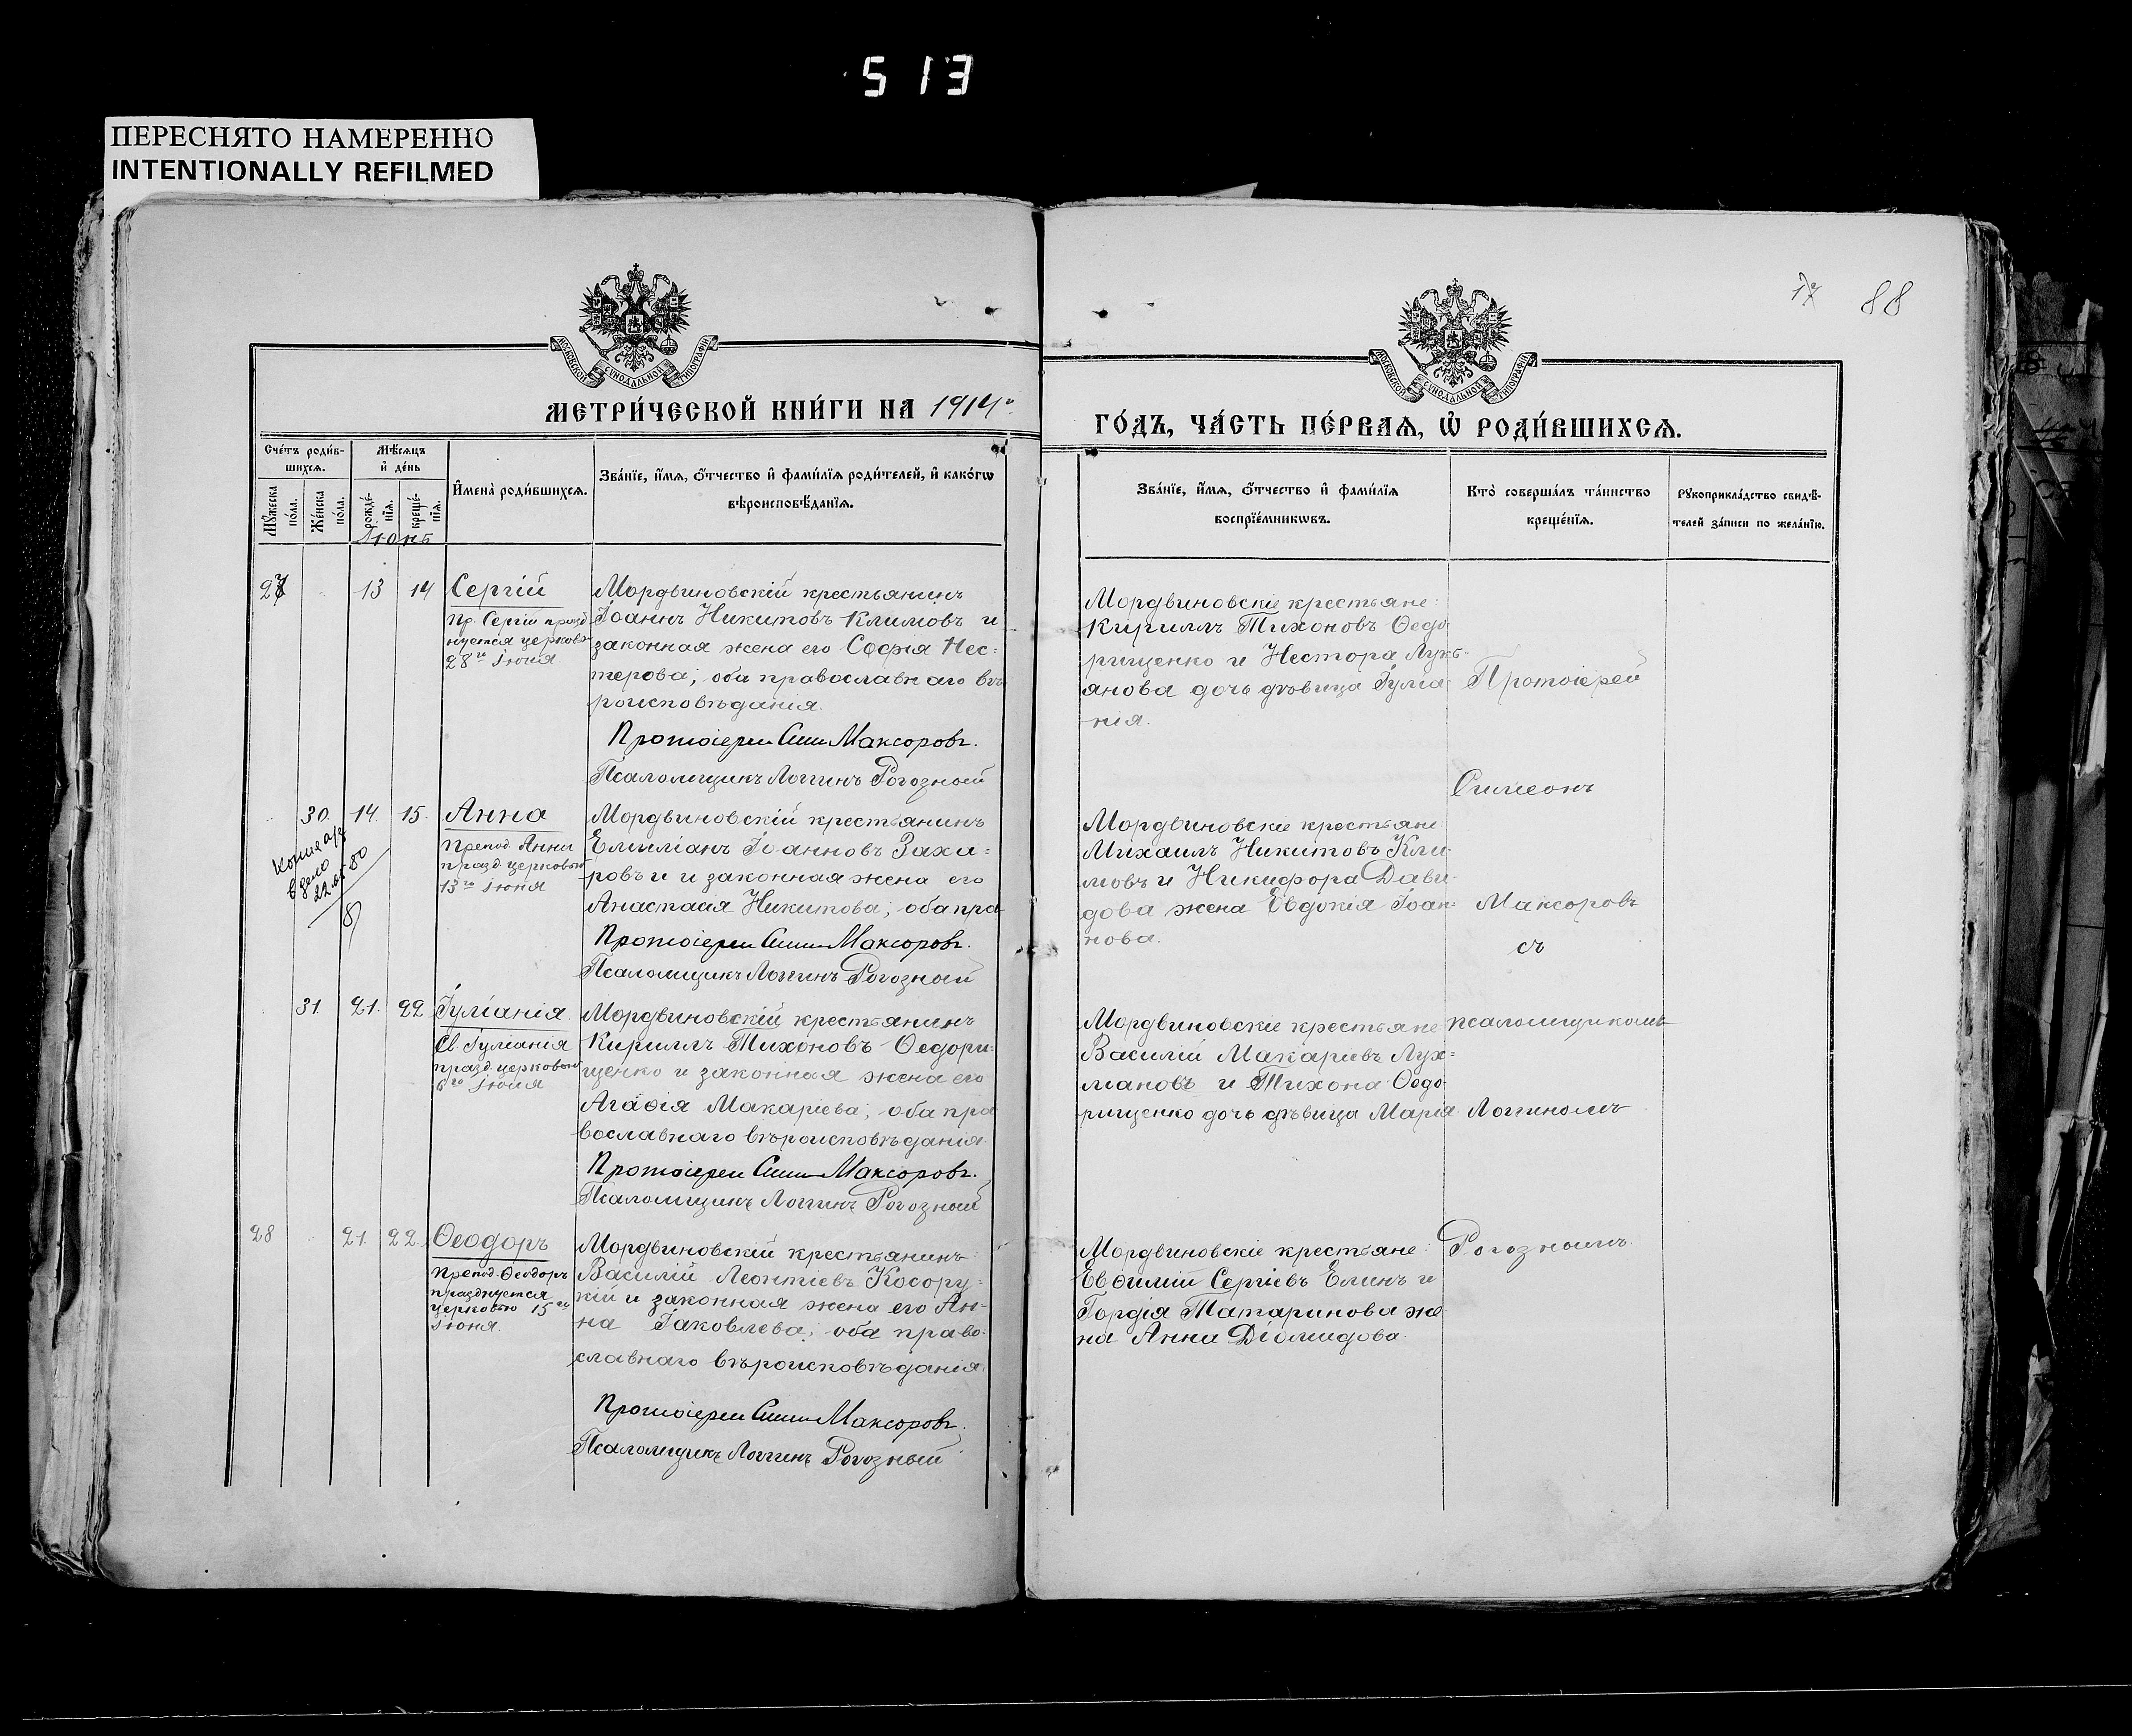 513
ПЕРЕСНЯТО НАМЕРЕННО
INTENTIONALLY REFILMED
17 88
МОСКОВСКОЙ СѴНОДАЛЬНОЙ ТИПОГРАФІИ
МОСКОВСКОЙ СѴНОДАЛЬНОЙ ТИПОГРАФІИ
МЕТРИ́ЧЕСКОЙ КНИ́ГИ НА 1914 г.
ГО́ДЪ, ЧА́СТЬ ПЕ́РВАѦ, Ѡ҆ РОДИ́ВШИХСѦ.
Сче́тъ роди́в-
шихсѧ.
Мѣ́сѧцъ
и҆ де́нь
Мꙋ́жеска
по́ла.
Же́нска
по́ла.
рожде́-
нїѧ.
креще́-
нїѧ.
И҆мена̀ роди́вшихсѧ.
Зва́нїе, и҆́мѧ, ѻ҆́тчество и҆ фами́лїѧ роди́телей, и҆ како́гѡ
вѣроисповѣ́данїѧ.
Зва́нїе, и҆́мѧ, ѻ҆́тчество и҆ фами́лїѧ
воспрїе́мникѡвъ.
Кто̀ соверша́лъ та́инство
креще́нїѧ.
Рꙋкоприкла́дство свидѣ́-
телей за́писи по жела́нїю.
Іюнь
27 13 14 Сергій
Пр. Сергій празд
нуется церковью
28го Іюня
Мордвиновскій крестьянинъ
Іоаннъ Никитовъ Климовъ и
законная жена его Софія Нес-
терова; оба православнаго вѣ-
роисповѣданія.
Протоіерей Сим Максоровъ.
Псаломщикъ Логгинъ Рогозный
Мордвиновскіе крестьяне:
Кириллъ Тихоновъ Ѳедо
рищенко и Нестора Лукь-
янова дочь дѣвица Іуліа-
нія.
Протоіерей
Симеонъ
30 14. 15. Анна
Препод. Анны
празд. церковью
13го Іюня
копия а/з
дело
22.05.80
Мордвиновскій крестьянинъ
Емиліанъ Іоанновъ Заха-
ровъ и и законная жена его
Анастасія Никитова; оба пра
Протоіерей Сим Максоровъ.
Псаломщикъ Логгинъ Рогозный
Мордвиновскіе крестьяне
Михаилъ Никитовъ Кли-
мовъ и Никифора Дави-
дова жена Евдокія Іоан-
нова.
Максоровъ
съ
31. 21. 22 Іуліанія
Св. Іуліанія
празд. церковью
Мордвиновскій крестьянинъ
Кириллъ Тихоновъ Ѳедори-
щенко и законная жена его
Агаѳія Макаріева; оба пра
вославнаго вѣроисповѣданія.
Протоіерей Сим Максоровъ.
Псаломщикъ Логгинъ Рогозный
Мордвиновскіе крестьяне
Василій Макаріевъ Лух-
мановъ и Тихона Ѳедо
рищенко дочь дѣвица Марія
псаломщикомъ
Логгиномъ
28 21. 22. Ѳеодоръ
Препод. Ѳеодоръ
празднуется
церковью 15го
Іюня.
Мордвиновскій крестьянинъ
Василій Леонтіевъ Косору-
кій и законная жена его Ан-
на Іаковлева; оба право-
славнаго вѣроисповѣданія.
Протоіерей Сим Максоровъ.
Псаломщикъ Логгинъ Рогозный
Мордвиновскіе крестьяне:
Евѳимій Сергіевъ Елинъ и
Гордія Татаринова же
на Анна Діомидова.
Рогознымъ.